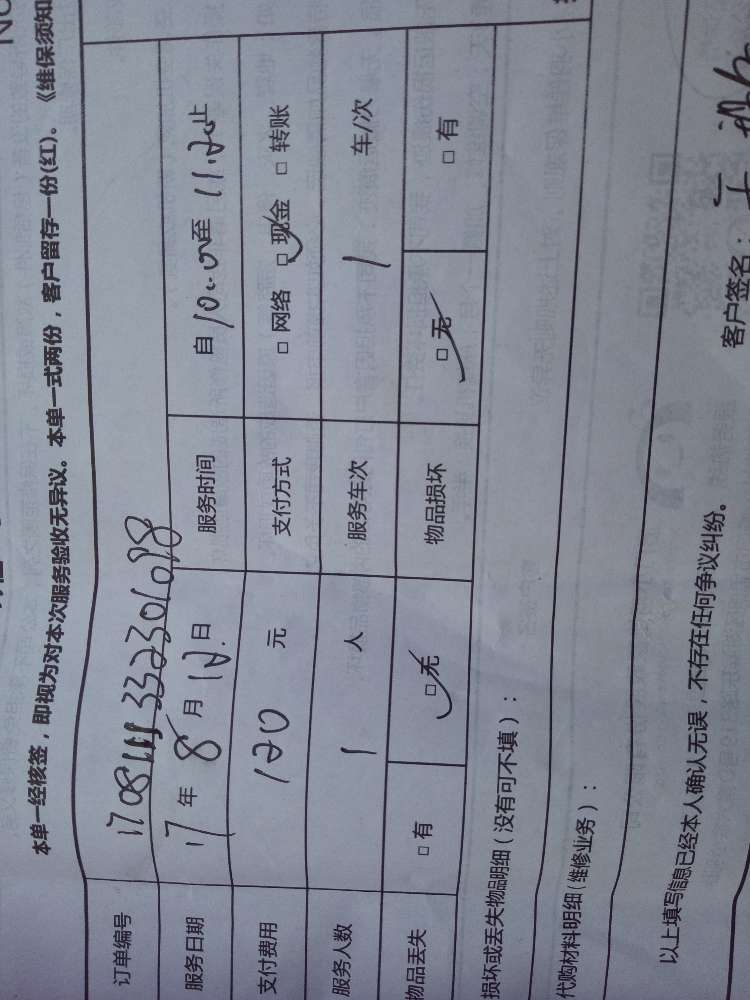 本单一经核签，即视为对本次服务验收无异议。本单一式两份，客户留存一份(红)。《维保须知
订单编号
服务日期 17 年 8 月 12 日 服务时间 自 10:00 至 11:20 止
支付费用 120 元 支付方式 □ 网络 □ 现金 □ 转账
服务人数 1 人 服务车次 1 车/次
物品丢失 □ 有 □ 无 物品损坏 □ 无 □ 有
损坏或丢失物品明细（没有可不填）：
代购材料明细（维修业务）：
以上填写信息已经本人确认无误，不存在任何争议纠纷。
客户签名：